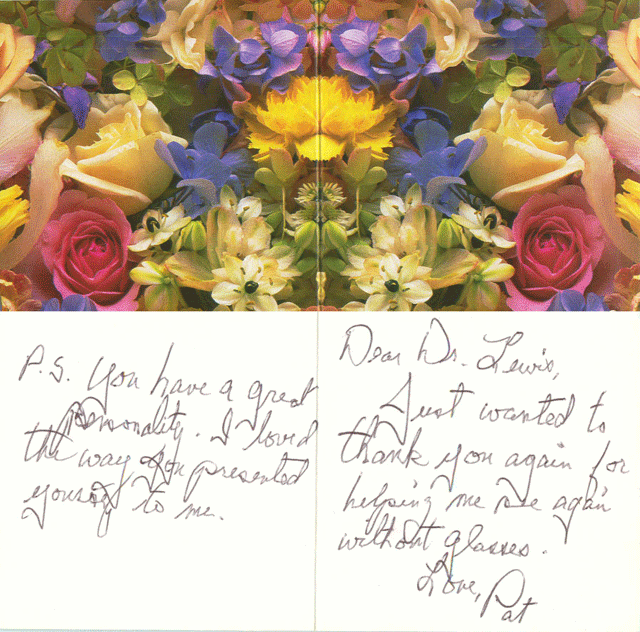 Dear Dr. Lewis,
Just wanted to
thank you again for
helping me see again
without glasses.
Love, Pat
P.S. You have a great
personality. I loved
the way you presented
yourself to me.